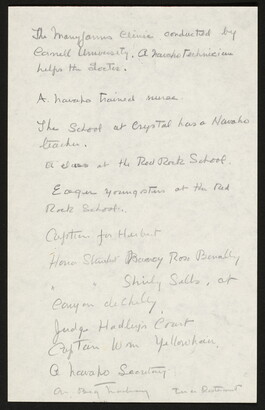 The ManyFarms Clinic conducted by
Cornell University. A Navaho technician
helps the doctor.
A Navaho trained nurse
The School at Crystal has a Navaho
teacher.
A class at the Red Rock School.
Eager youngsters at the Red
Rock School.
Caption for Herbert
Honor Student Ross
" " Shirly at
Canyon de Chelly
Judge Hadley's Court
Captain Wm Yellowhair,
A Navaho Secretary